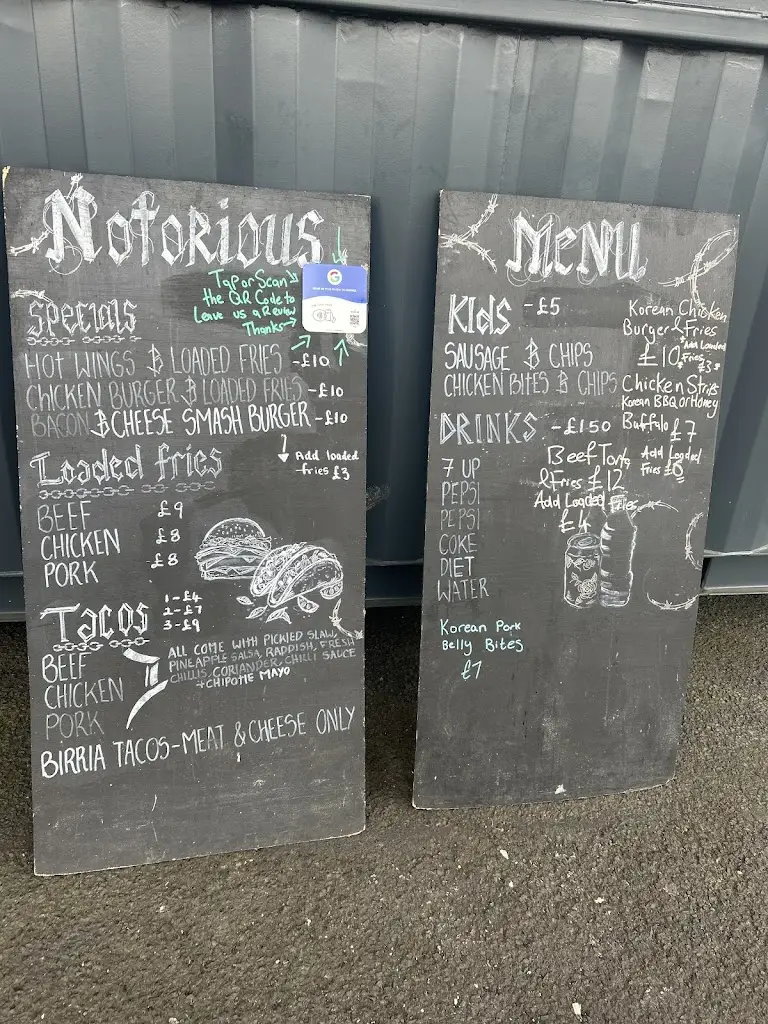 Notorious
Tap or Scan
the QR Code to
Leave us a Review
Thanks
Specials
HOT WINGS & LOADED FRIES -£10
CHICKEN BURGER & LOADED FRIES -£10
BACON & CHEESE SMASH BURGER -£10
Add loaded
fries £3
Loaded fries
BEEF £9
CHICKEN £8
PORK £8
Tacos
1-£4
2-£7
3-£9
BEEF
CHICKEN
PORK
ALL COME WITH PICKLED SLAW,
PINEAPPLE SALSA, RADDISH, FRESH
CHILLIS, CORIANDER, CHILLI SAUCE
+CHIPOTLE MAYO
BIRRIA TACOS-MEAT & CHEESE ONLY
MENU
KIDS -£5
SAUSAGE & CHIPS
CHICKEN BITES & CHIPS
Korean Chicken
Burger & Fries
£10
*Add Loaded
Fries
£3*
Chicken Strips
Korean BBQ or Honey
Buffalo £7
Add Loaded
Fries
DRINKS -£1.50
7 UP
PEPSI
PEPSI
COKE
DIET
WATER
Beef
& Fries £12
Add Loaded Fries
£4
Korean Pork
Belly Bites
£7